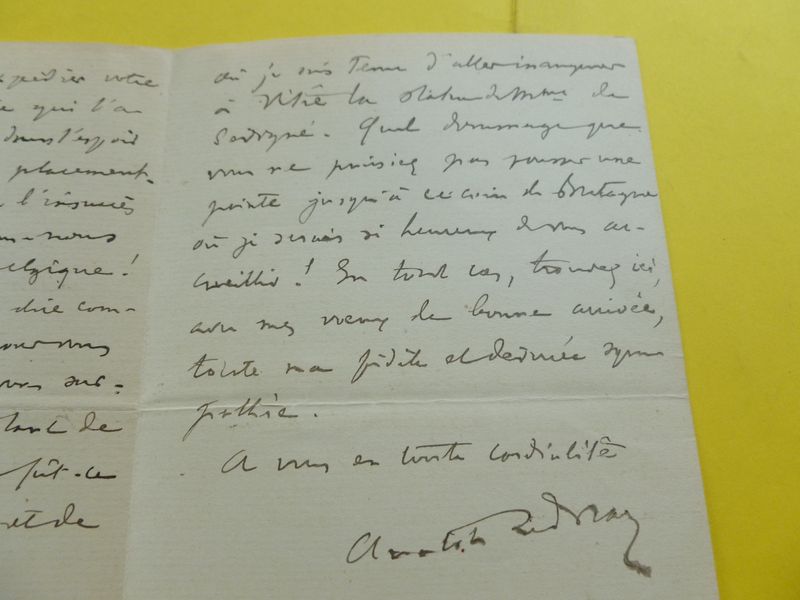 pédier votre
qui l'a-
dans l'espoir
placement.
l'insuccès
nous
elgique!
dire com-
pour vous
vous sur-
tant de
fût-ce
et de
où je suis tenu d'aller inaugurer
à Vitré la statue de Mme de
Sévigné. Quel dommage que
vous ne puissiez pas pousser une
pointe jusqu'à ce coin de Bretagne
où je serais si heureux de vous ac-
cueillir! En tout cas, trouvez ici,
avec mes vœux de bonne arrivée,
toute ma fidèle et dévouée sym-
pathie.
A vous en toute cordialité
Anatole Le Braz